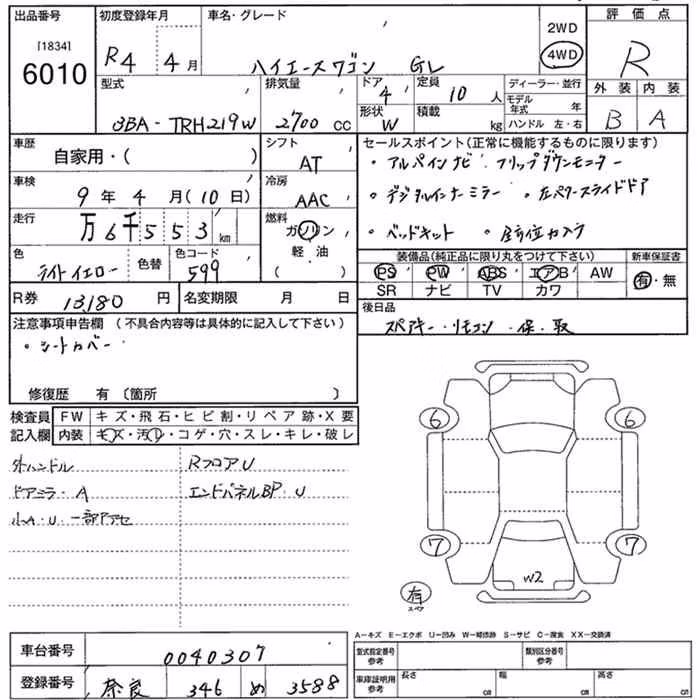 出品番号 初度登録年月 車名・グレード 評価点
[1834]
6010
R4年 4月 ハイエースワゴン GL
2WD
4WD
R
型式 排気量 ドア 定員 ディーラー・並行 外装 内装
3BA-TRH219W 2700 cc 4 10 人
モデル年式 年
形状 W 積載 kg ハンドル 左・右 B A
車歴 シフト セールスポイント(正常に機能するものに限ります)
自家用・( ) AT ・アルパインナビ・フリップダウンモニター
車検 冷房 ・デジタルインナーミラー ・左パワースライドドア
9年 4月(10日) AAC
走行 燃料 ・ベッドキット ・全方位カメラ
万6千553 km ガソリン
軽・油
( )
色 色替 色コード 装備品(純正品に限り丸をつけて下さい) 新車保証書
ライトイエロー 599 PS PW ABS エアB AW 有・無
SR ナビ TV カワ
R券 13180 円 名変期限 月 日 後日品
スペアキー・リモコン・保・取
注意事項申告欄 (不具合内容等は具体的に記入して下さい)
・シートカバー
修復歴 有〔箇所 〕
検査員記入欄 FW キズ・飛石・ヒビ割・リペア跡・X要
内装 キズ・汚れ・コゲ・穴・スレ・キレ・破レ
6 6
外ハンドル RフロアU
ドアミラ・A エンドパネルBP・U
小A・U・一部アアセ
7 7
W2
有
スペア
A-キズ E-エクボ U-凹み W-補修跡 S-サビ C-腐食 XX-交換済
車台番号 0040307 型式指定番号 参考 類別区分番号 参考
登録番号 奈良 346 め 3588 車庫証明用 参考 長さ cm 幅 cm 高さ cm